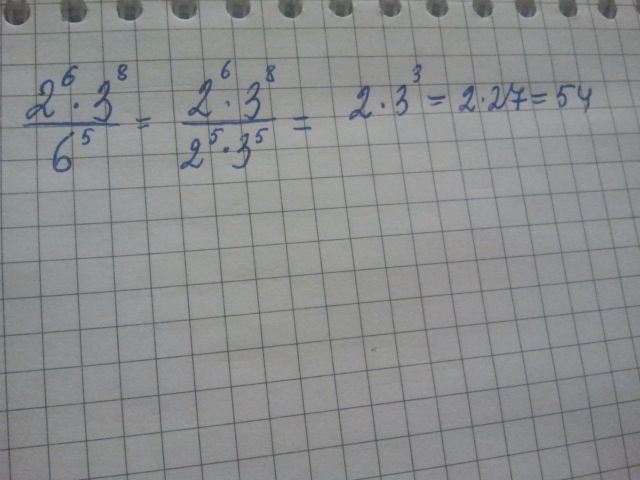 2⁶·3⁸/6⁵ = 2⁶·3⁸/2⁵·3⁵ = 2·3³ = 2·27 = 54